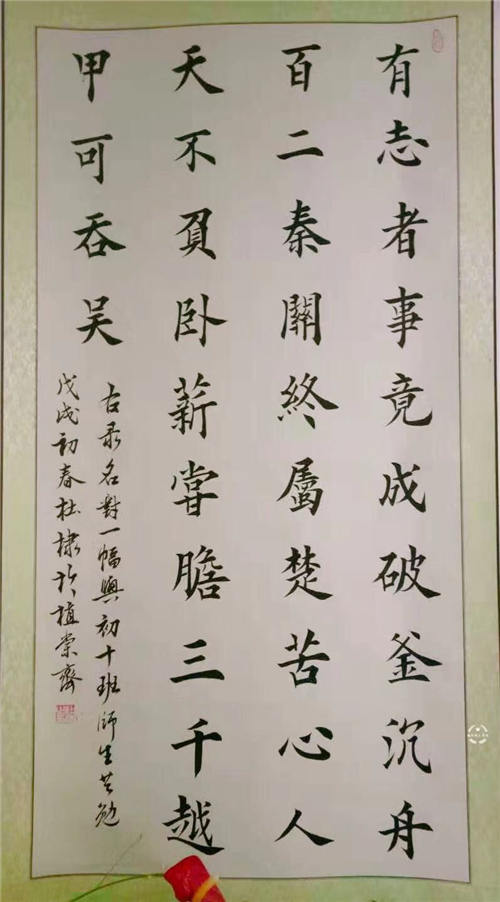 有志者事竟成破釜沉舟
百二秦關終屬楚苦心人
天不負卧薪嘗膽三千越
甲可吞吴
古录名對一幅與初十班師生共勉
戊戌初春杜棣於植棠齋